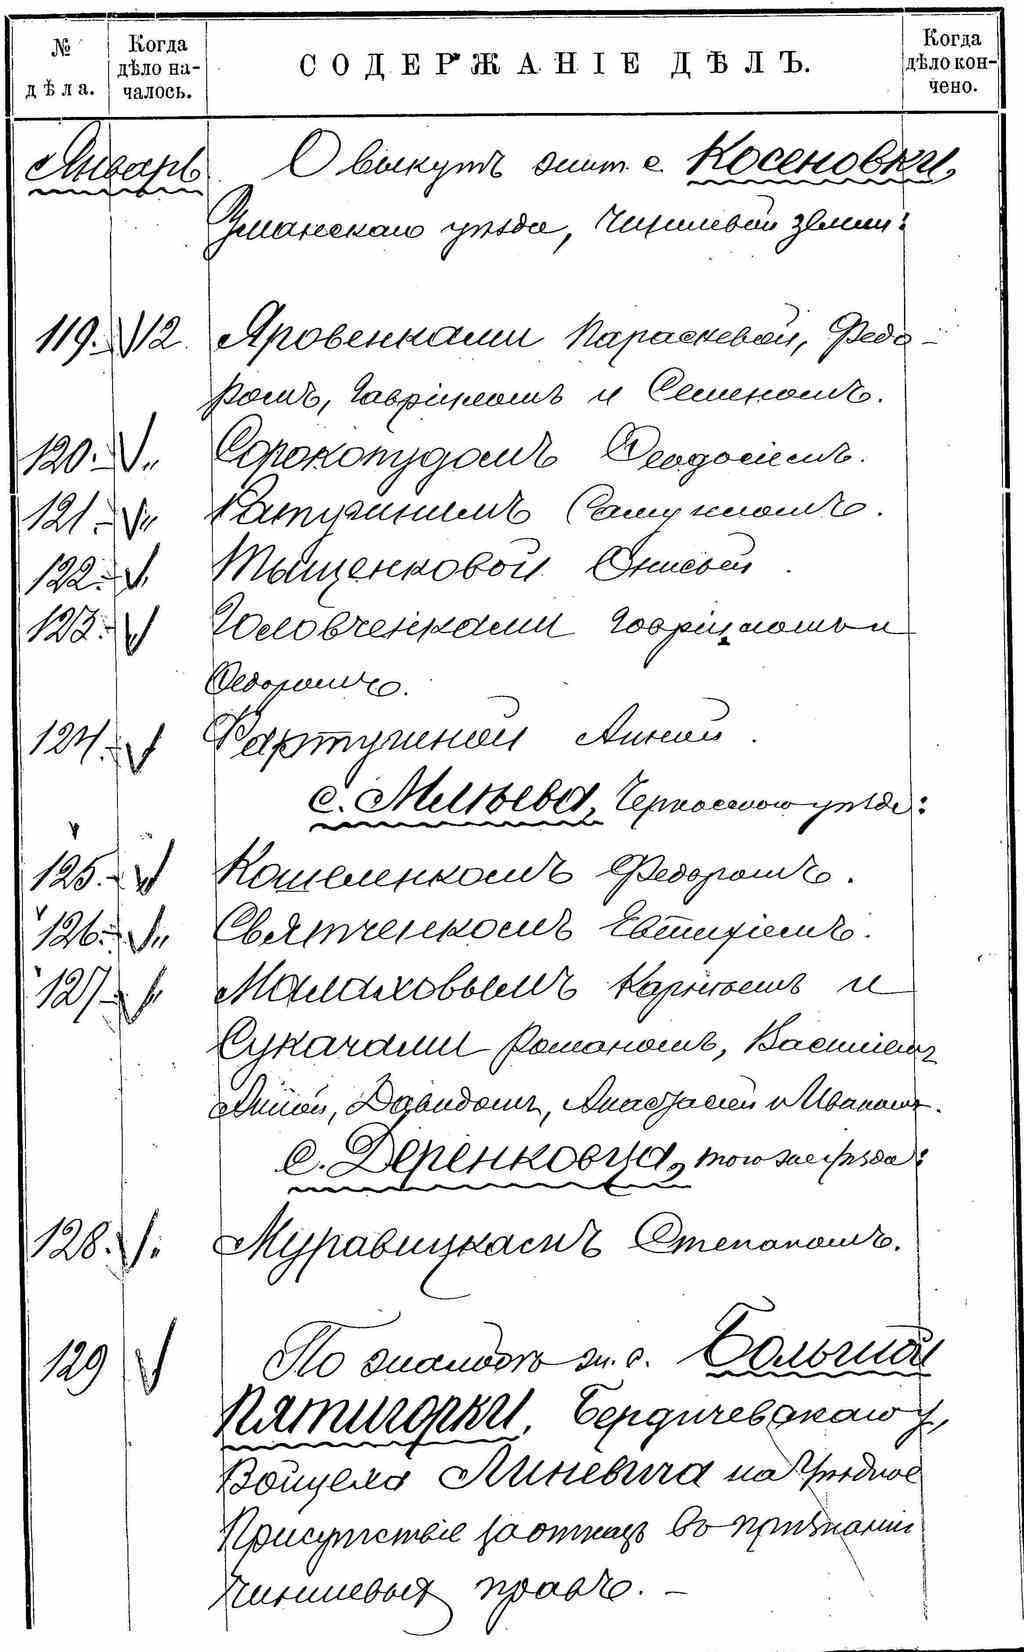 № дѣла.
Когда дѣло началось.
СОДЕРЖАНІЕ ДѢЛЪ.
Когда дѣло кончено.
Январь О выкупѣ жит. с. Косеновки,
Уманскаго уѣзда, Чиншевой земли:
119. 12. Яровенками Параскевой, Федо-
ромъ, Гавріиломъ и Семеномъ.
120. „ Сорокопудомъ Феодосіемъ.
121. „ Самуиломъ.
122. „ Тыщенковой Онисьей.
123. Головченками Гавріиломъ и
Федоромъ.
124. Анной.
с. Млѣева, Черкасскаго уѣзда:
125. Кошеленкомъ Федоромъ.
126. „ Святченкомъ Евтихіемъ.
127. „ Малаховымъ и
Сукачами Романомъ, Василіемъ
Анной, Давидомъ, Анастасіей и Иваномъ.
с. Деренковца, того же уѣзда:
128. „ Муравицкимъ Степаномъ.
129 По жалобѣ ж. с. Большой
Пятигорки, Бердичевскаго у,
Войцеха Линевича на Уѣздное
Присутствіе за отказъ въ признаніи
чиншевыхъ правъ. –